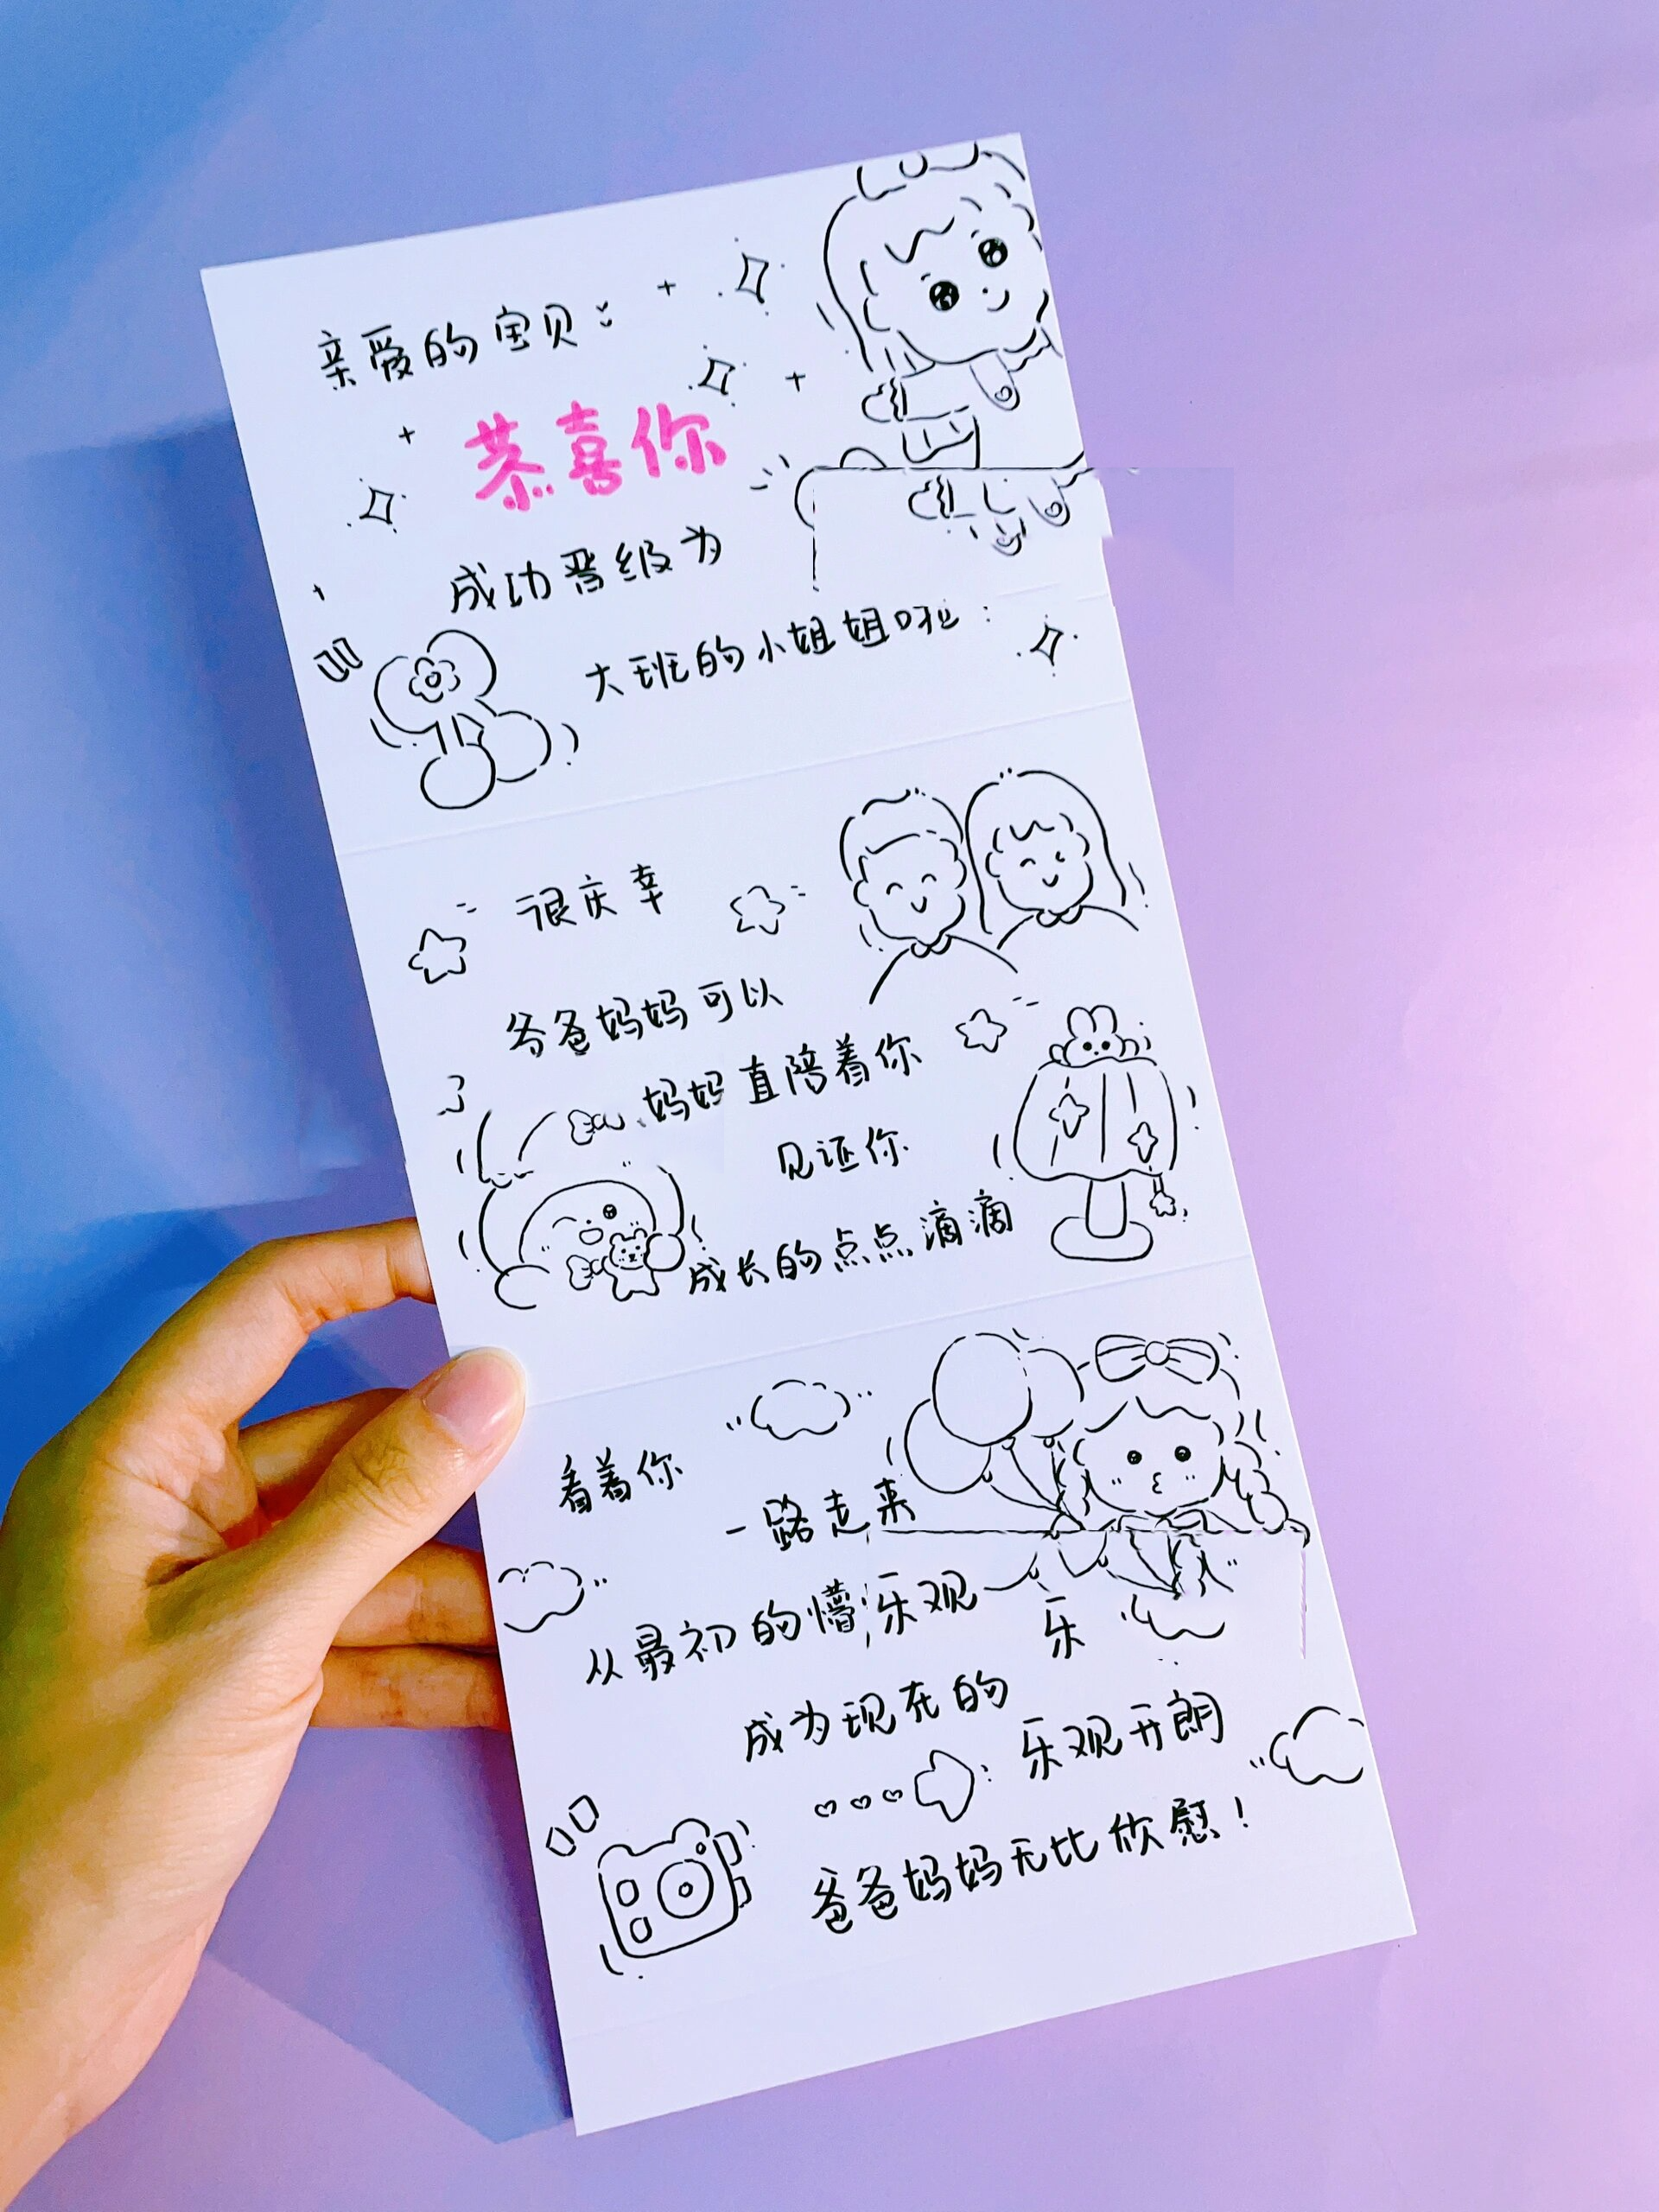 亲爱的宝贝:
恭喜你
成功晋级为
大班的小姐姐啦:
很庆幸
爸爸妈妈可以
妈妈直陪着你
见证你
成长的点点滴滴
看着你
一路走来
从最初的懵
乐观
乐
成为现在的
乐观开朗
爸爸妈妈无比欣慰!